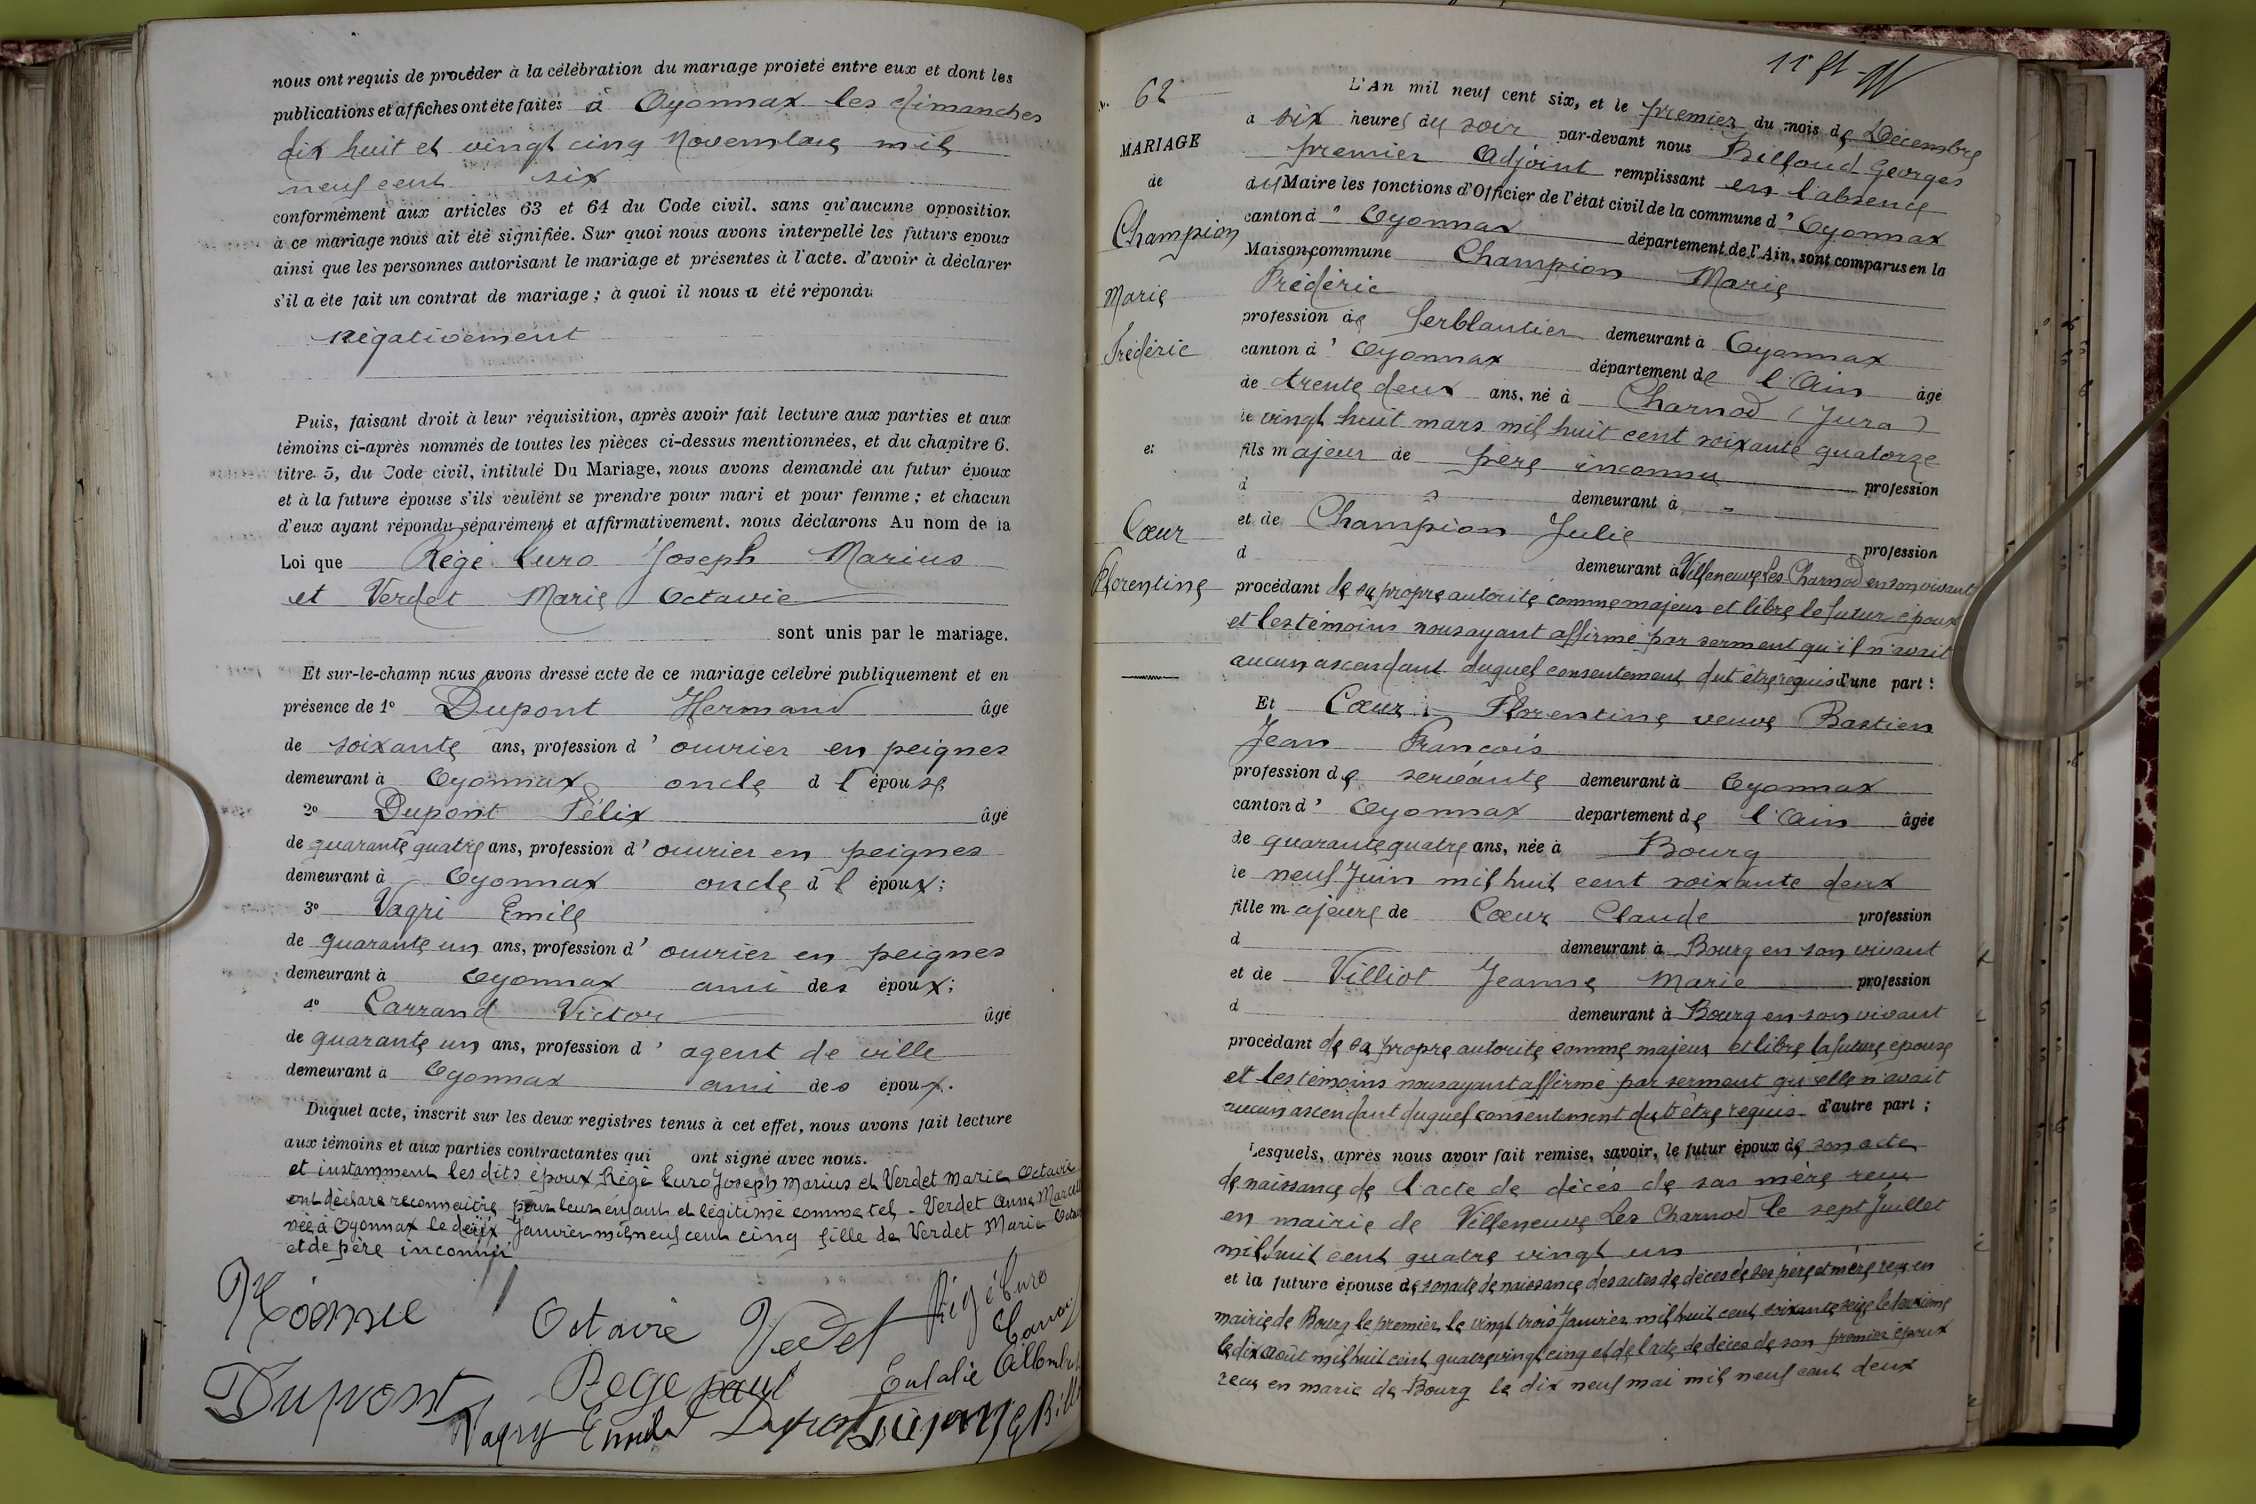 nous ont requis de procéder à la célébration du mariage projeté entre eux et dont les
publications et affiches ont été faites à Oyonnax les dimanches
dix huit et vingt cinq Novembre mil
neuf cent six
conformément aux articles 63 et 64 du Code civil, sans qu'aucune opposition
à ce mariage nous ait été signifiée. Sur quoi nous avons interpellé les futurs époux
ainsi que les personnes autorisant le mariage et présentes à l'acte, d'avoir à déclarer
s'il a été fait un contrat de mariage ; à quoi il nous a été répondu
négativement
Puis, faisant droit à leur réquisition, après avoir fait lecture aux parties et aux
témoins ci-après nommés de toutes les pièces ci-dessus mentionnées, et du chapitre 6.
titre 5, du Code civil, intitulé Du Mariage, nous avons demandé au futur époux
et à la future épouse s'ils veulent se prendre pour mari et pour femme ; et chacun
d'eux ayant répondu séparément et affirmativement, nous déclarons Au nom de la
Loi que Régé Curo Joseph Marius
et Verdet Marie Octavie
sont unis par le mariage.
Et sur-le-champ nous avons dressé acte de ce mariage célébré publiquement et en
présence de 1º Dupont Hermand âgé
de soixante ans, profession d' ouvrier en peignes
demeurant à Oyonnax oncle d l'épouse
2º Dupont Félix âgé
de quarante quatre ans, profession d' ouvrier en peignes
demeurant à Oyonnax oncle d l'époux;
3º Vagri Emile
de quarante un ans, profession d' ouvrier en peignes
demeurant à Oyonnax ami des époux;
4º Carrand Victor âgé
de quarante un ans, profession d' agent de ville
demeurant à Oyonnax ami des époux.
Duquel acte, inscrit sur les deux registres tenus à cet effet, nous avons fait lecture
aux témoins et aux parties contractantes qui ont signé avec nous.
et instamment les dits époux Régé Curo Joseph Marius et Verdet Marie Octavie
ont déclaré reconnaitre pour leur enfant et légitimé comme tel - Verdet Anna
née à Oyonnax le dix Janvier mil neuf cent cinq fille de Verdet Marie
et de père inconnu
Octavie Verdet Régé Curo
Dupont Rege paul Eulalie
Vagry Emile
11
Nº 62
MARIAGE
de
Champion
Marie
Frédéric
et
Cœur
Florentine
L'An mil neuf cent six, et le premier du mois de Décembre
a six heures du soir par-devant nous Billoud Georges
premier Adjoint remplissant en l'absence
du Maire les fonctions d'Officier de l'état civil de la commune d' Oyonnax
canton d' Oyonnax département de l'Ain, sont comparus en la
Maison commune Champion Marie
Frédéric
profession de ferblantier demeurant à Oyonnax
canton d' Oyonnax département de l'Ain âgé
de trente deux ans, né à Charnod (Jura)
le vingt huit mars mil huit cent soixante quatorze
fils majeur de père inconnu profession
d " demeurant à "
et de Champion Julie profession
d demeurant à Villeneuve Les Charnod en son vivant
procédant de sa propre autorité comme majeur et libre le futur époux
et les témoins nous ayant affirmé par serment qu'il n'avait
aucun ascendant duquel consentement dut être requis d'une part :
Et Cœur Florentine veuve Bastien
Jean François
profession de servante demeurant à Oyonnax
canton d' Oyonnax département de l'Ain âgée
de quarante quatre ans, née à Bourg
le neuf Juin mil huit cent soixante deux
fille majeure de Cœur Claude profession
d demeurant à Bourg en son vivant
et de Villiot Jeanne Marie profession
d demeurant à Bourg en son vivant
procédant de sa propre autorité comme majeur et libre la future épouse
et les témoins nous ayant affirmé par serment qu'elle n'avait
aucun ascendant duquel consentement dut être requis d'autre part ;
Lesquels, après nous avoir fait remise, savoir, le futur époux de son acte
de naissance de l'acte de décès de sa mère reçu
en mairie de Villeneuve Les Charnod le sept Juillet
mil huit cent quatre vingt un
et la future épouse de son acte de naissance des actes de décès de ses père et mère reçus en
mairie de Bourg le premier le vingt trois Janvier mil huit cent soixante seize le deuxième
le dix août mil huit cent quatre vingt cinq et de l'acte de décès de son premier époux
reçu en marie de Bourg le dix neuf mai mil neuf cent deux